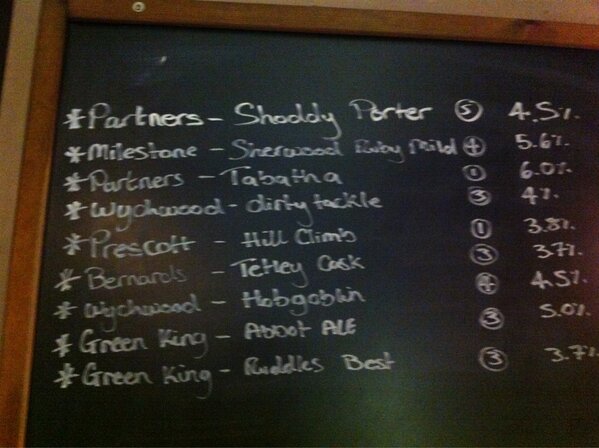 *Partners - Shoddy Porter ⑤ 4.5%.
*Milestone - Sherwood Ruby Mild ④ 5.6%.
*Partners - Tabatha ① 6.0%.
*Wychwood - dirty tackle ③ 4%.
*Prescott - Hill Climb ① 3.8%.
*Bernards - Tetley Cask ③ 3.7%.
*Wychwood - Hobgoblin ④ 4.5%.
*Green King - ABBOT ALE ③ 5.0%.
*Green King - Ruddles Best ③ 3.7%.